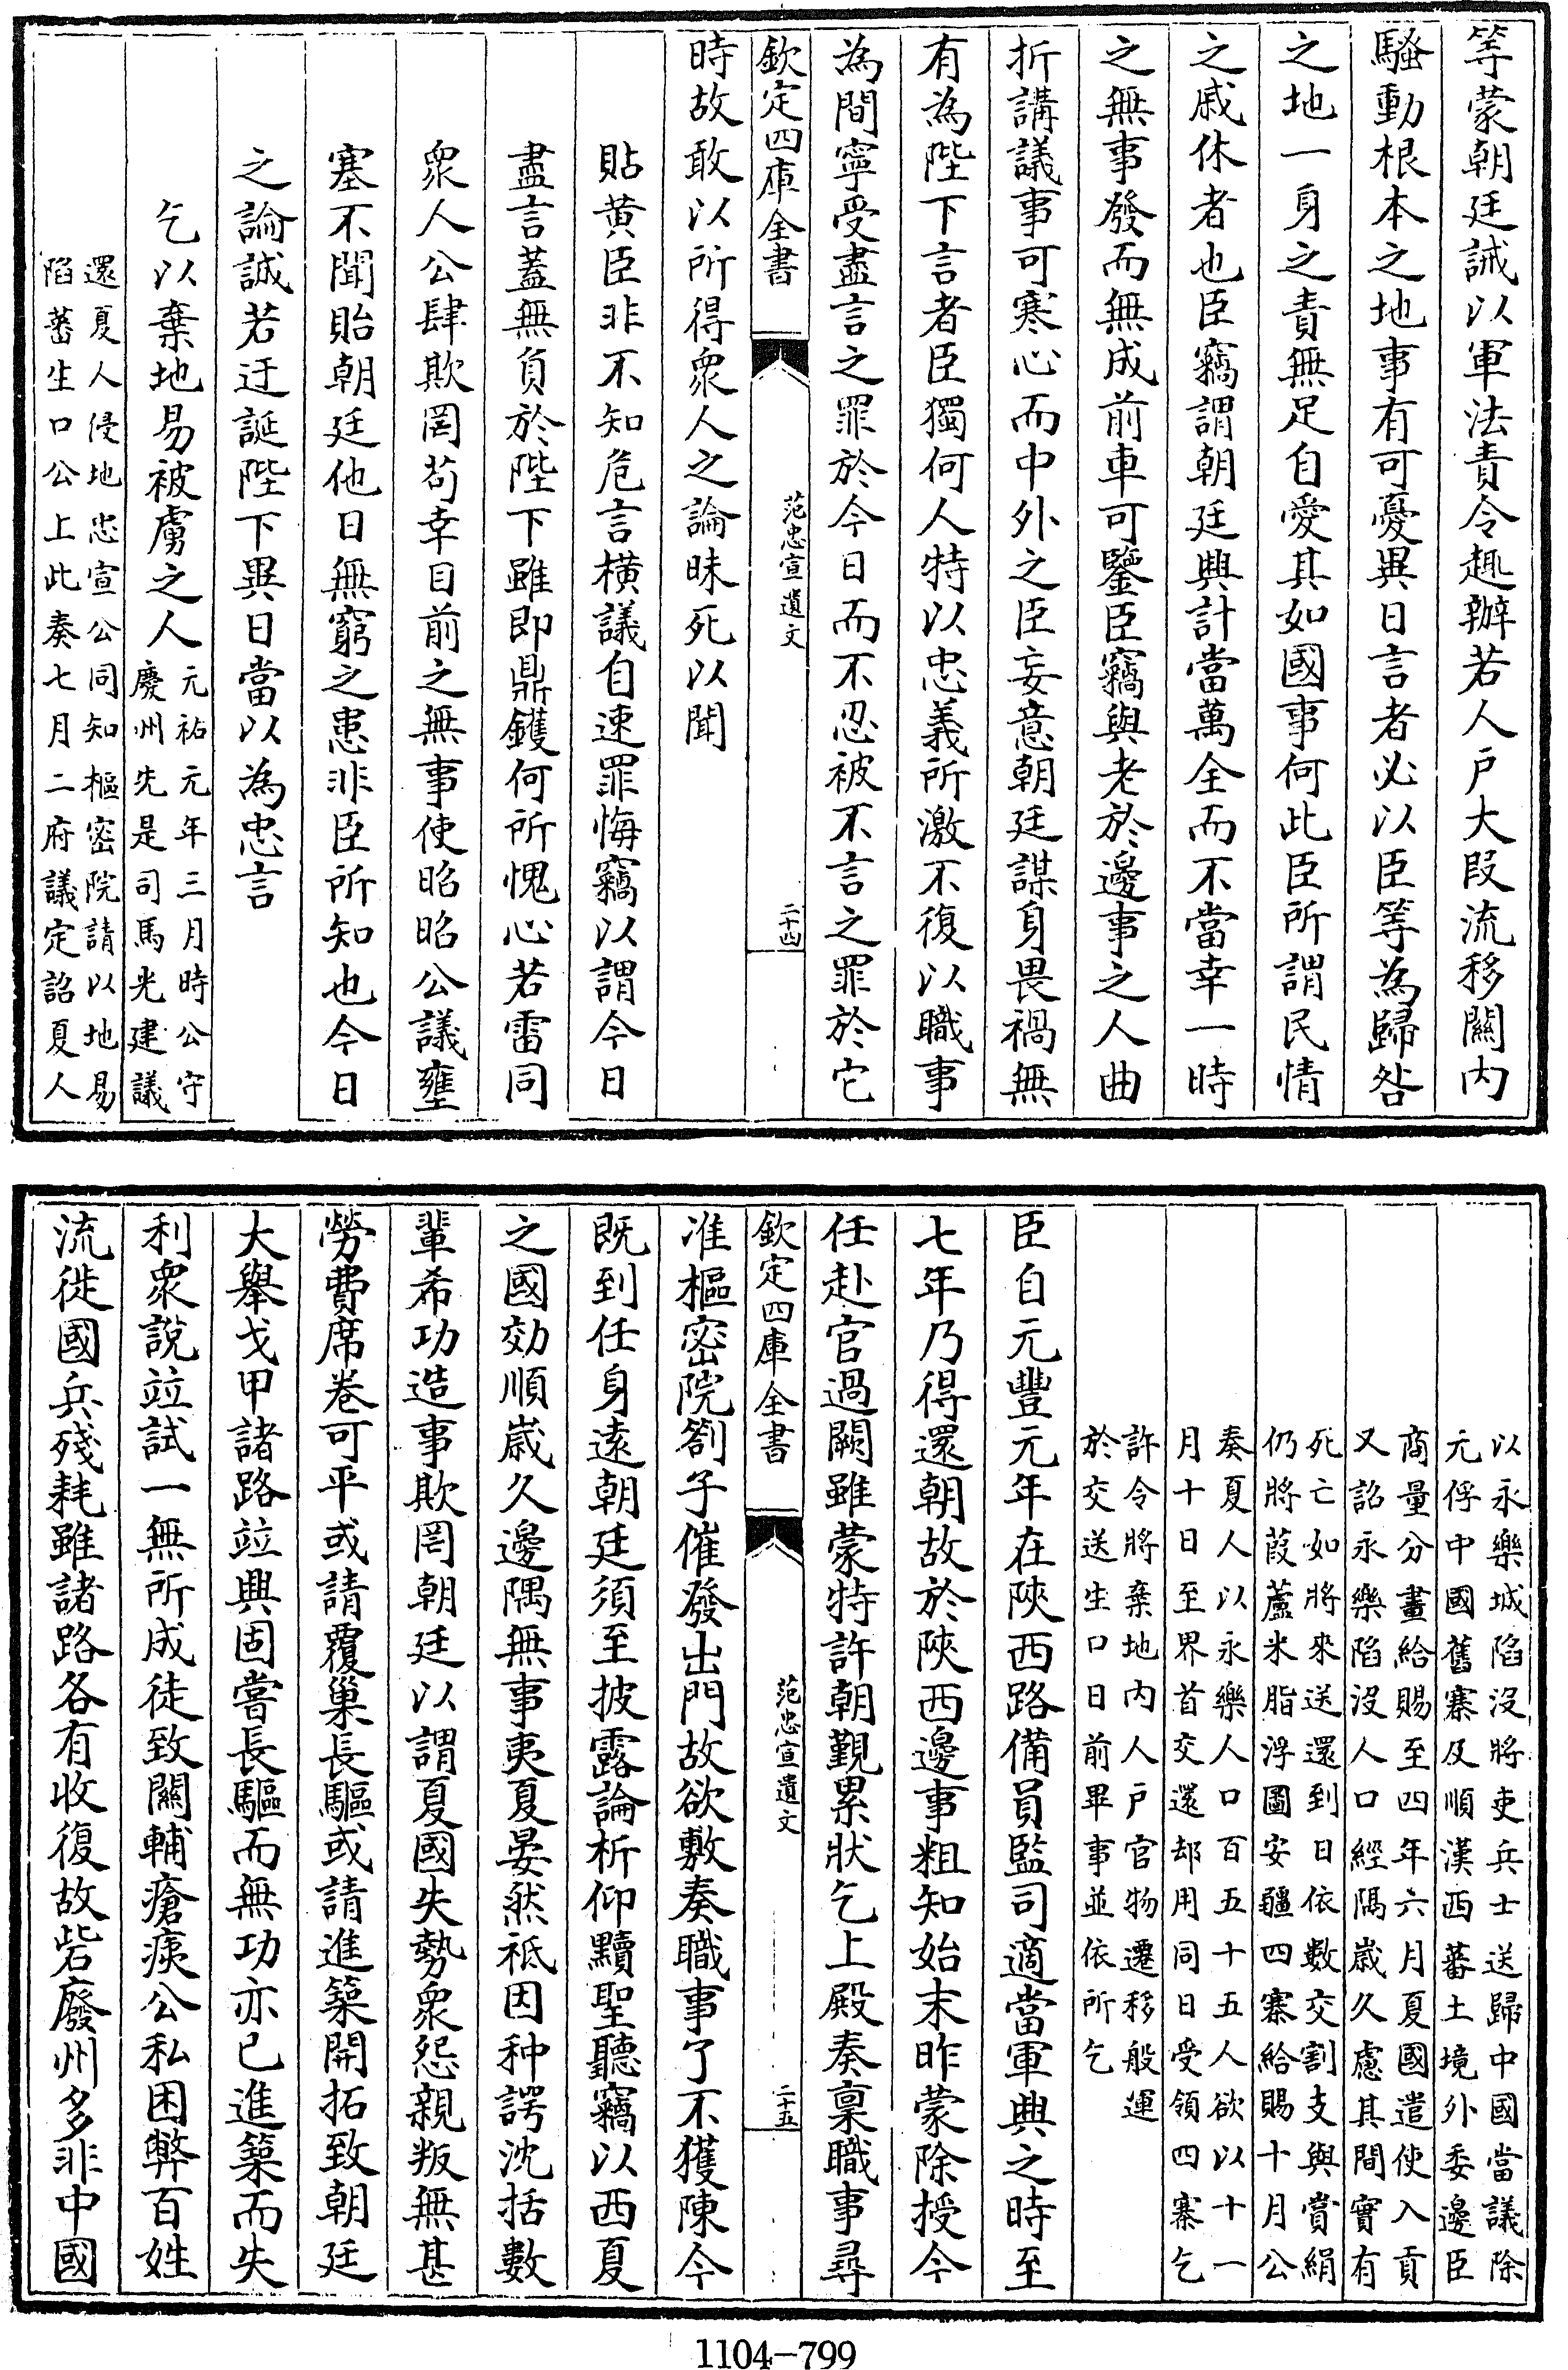 等蒙朝廷誡以軍法責令趣辦若人戶大段流移關內
騷動根本之地事有可憂異日言者必以臣等為歸咎
之地一身之責無足自愛其如國事何此臣所謂民情
之戚休者也臣竊謂朝廷興計當萬全而不當幸一時
之無事發而無成前車可鑒臣竊與老於邊事之人曲
折講議事可寒心而中外之臣妄意朝廷謀身畏禍無
有為陛下言者臣獨何人特以忠義所激不復以職事
為間寧受盡言之罪於今日而不忍被不言之罪於它
欽定四庫全書
范忠宣遺文
二十四
時故敢以所得衆人之論昧死以聞
貼黃臣非不知危言橫議自速罪悔竊以謂今日
盡言蓋無負於陛下雖即鼎鑊何所愧心若雷同
衆人公肆欺罔苟幸目前之無事使昭昭公議壅
塞不聞貽朝廷他日無窮之患非臣所知也今日
之論誠若迂誕陛下異日當以為忠言
乞以棄地易被虜之人
元祐元年三月時公守
慶州先是司馬光建議
還夏人侵地忠宣公同知樞密院請以地易
陷蕃生口公上此奏七月二府議定詔夏人
以永樂城陷沒將吏兵士送歸中國當議除
元俘中國舊寨及順漢西蕃土境外委邊臣
商量分畫給賜至四年六月夏國遣使入貢
又詔永樂陷沒人口經隔歲久慮其間實有
死亡如將來送還到日依數交割支與賞絹
仍將葭蘆米脂浮圖安疆四寨給賜十月公
奏夏人以永樂人口百五十五人欲以十一
月十日至界首交還却用同日受領四寨乞
許令將棄地內人戶官物遷移般運
於交送生口日前畢事並依所乞
臣自元豐元年在陝西路備員監司適當軍興之時至
七年乃得還朝故於陝西邊事粗知始末昨蒙除授今
任赴官過闕雖蒙特許朝覲累狀乞上殿奏稟職事尋
欽定四庫全書
范忠宣遺文
二十五
准樞密院劄子催發出門故欲敷奏職事了不獲陳今
既到任身遠朝廷須至披露論析仰黷聖聽竊以西夏
之國効順歲久邊隅無事夷夏晏然祗因种諤沈括數
輩希功造事欺罔朝廷以謂夏國失勢衆怨親叛無甚
勞費席卷可平或請覆巢長驅或請進築開拓致朝廷
大舉戈甲諸路竝興固嘗長驅而無功亦已進築而失
利衆說竝試一無所成徒致關輔瘡痍公私困弊百姓
流徙國兵殘耗雖諸路各有收復故砦廢州多非中國
1104-799